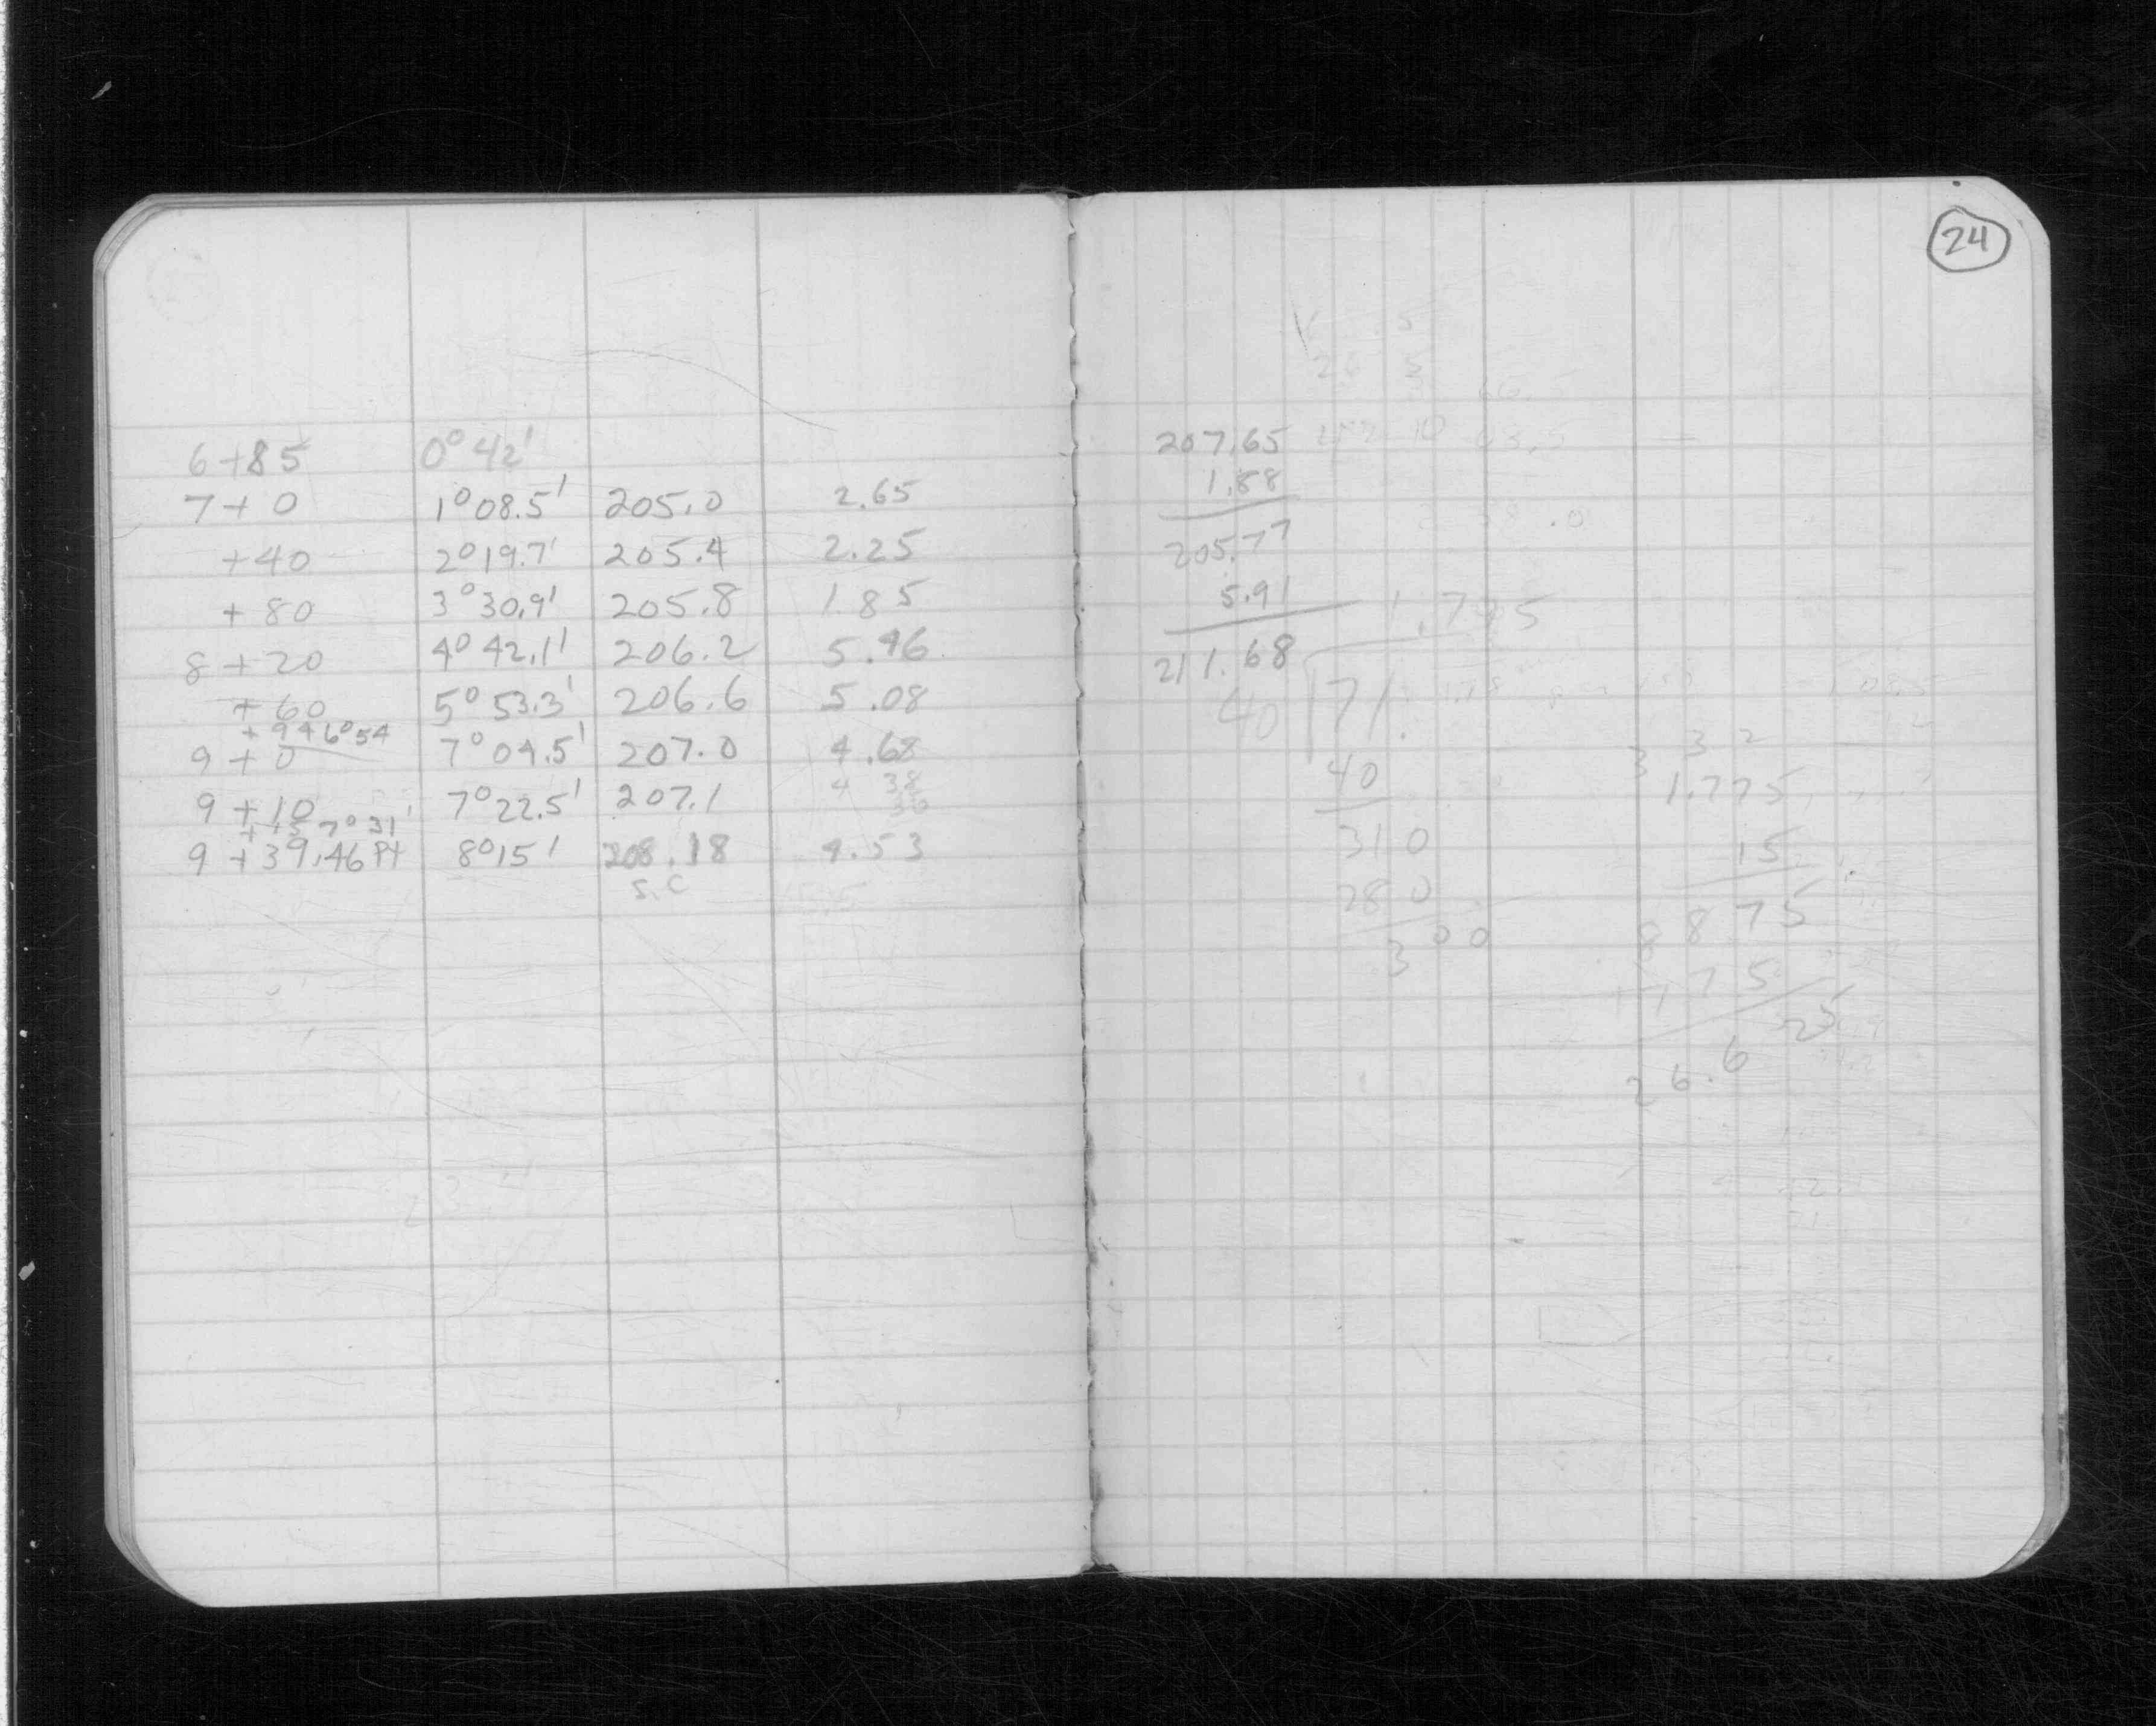 6+85 0°42'
7+0 1°08.5' 205.0 2.65
+40 2°19.7' 205.4 2.25
+80 3°30.9' 205.8 1.85
8+20 4°42.1' 206.2 5.46
+60 5°53.3' 206.6 5.08
+94 6°54
9+0 7°04.5' 207.0 4.68
9+10 7°22.5' 207.1 4 38
+15 7°31'
9+39.46 PT 8°15' 208.18 4.53
S.C
24
207.65
1.88
205.77
5.91
211.68
1.775
40 71.
40
310
280
300
3 3 2
1.775
15
8875
1775
26.625